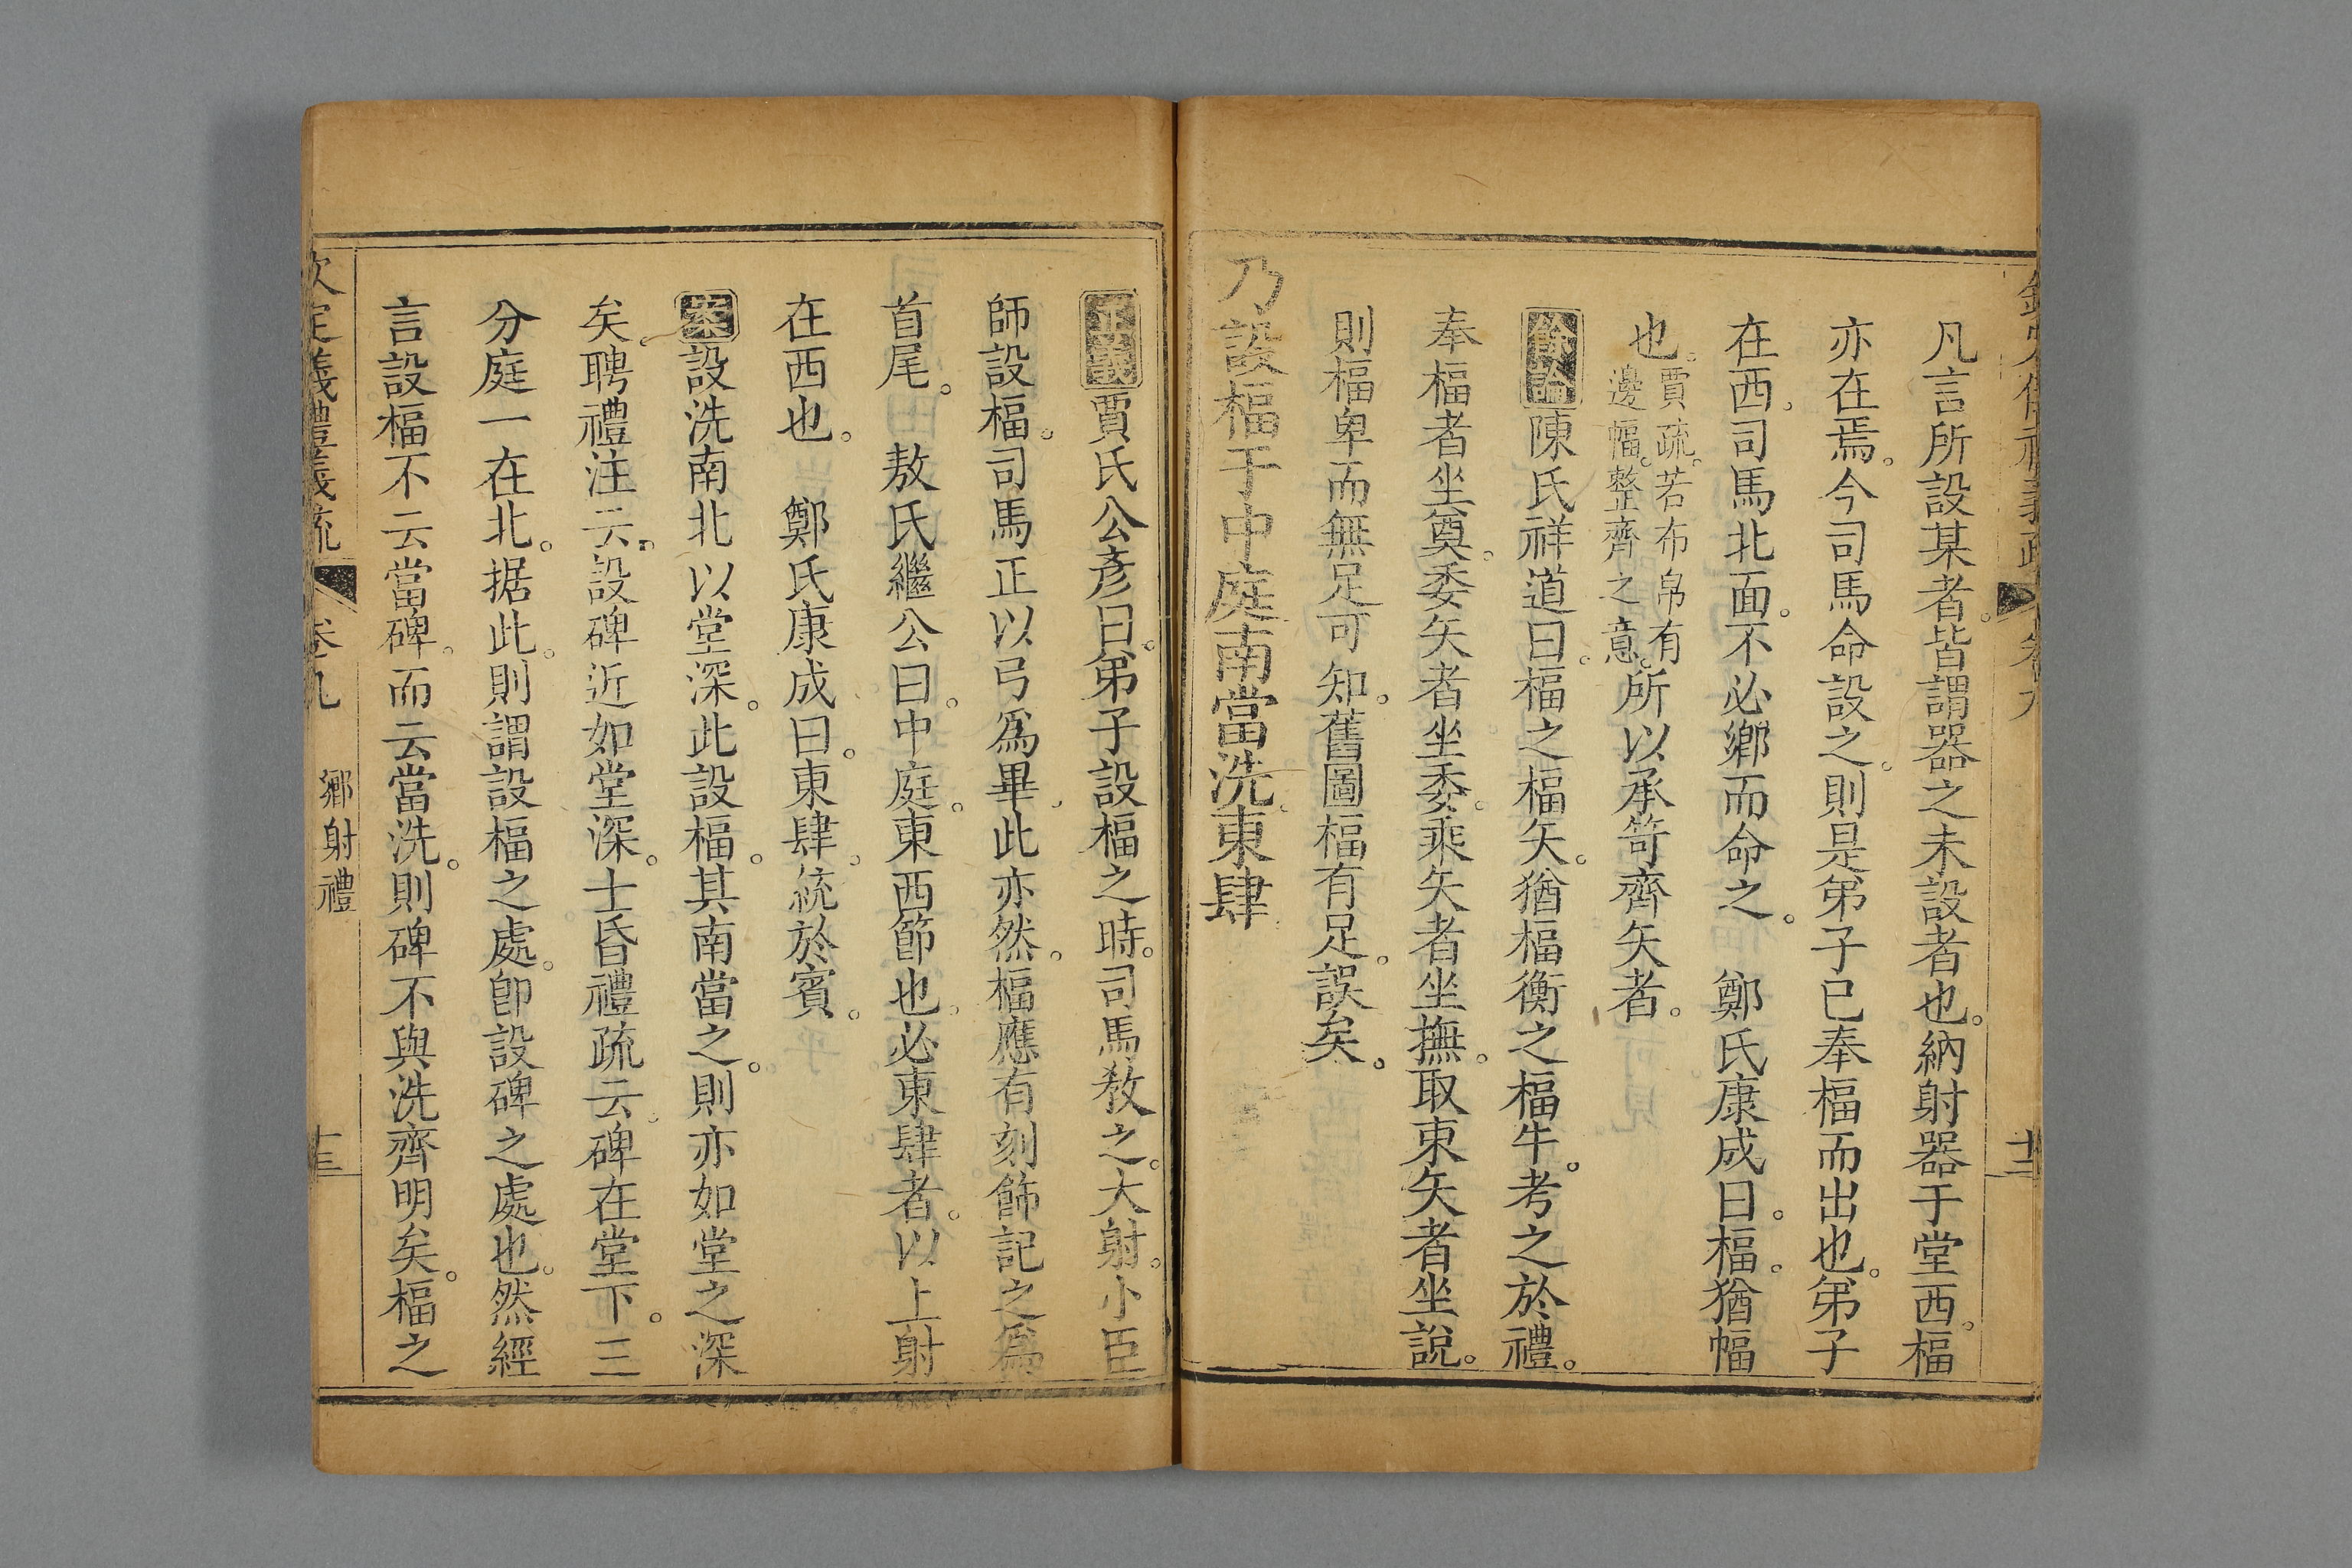 凡言所設某者。皆謂器之未設者也。納射器于堂西。楅
亦在焉。今司馬命設之。則是弟子已奉楅而出也。弟子
在西。司馬北面。不必鄉而命之。 鄭氏康成曰。楅。猶幅
也。賈疏。若布帛有邊幅。整齊之意。所以承笴齊矢者。
餘論陳氏祥道曰。楅之楅矢。猶楅衡之楅牛。考之於禮。
奉楅者坐奠。委矢者坐委。乘矢者坐撫。取束矢者坐說。
則楅卑而無足可知。舊圖楅有足。誤矣。
乃設楅于中庭南當洗。東肆
正義賈氏公彥曰。弟子設楅之時。司馬敎之。大射。小臣
師設楅。司馬正以弓爲畢。此亦然。楅應有刻飾。記之爲
首尾。 敖氏繼公曰。中庭。東西節也。必東肆者。以上射
在西也。 鄭氏康成曰。東肆。統於賓。
案設洗南北以堂深。此設楅。其南當之。則亦如堂之深
矣。聘禮注云。設碑近如堂深。士昏禮疏云。碑在堂下。三
分庭一在北。据此。則謂設楅之處。卽設碑之處也。然經
言設楅不云當碑。而云當洗。則碑不與洗齊明矣。楅之
欽定義禮義疏 卷九 鄉射禮 十三